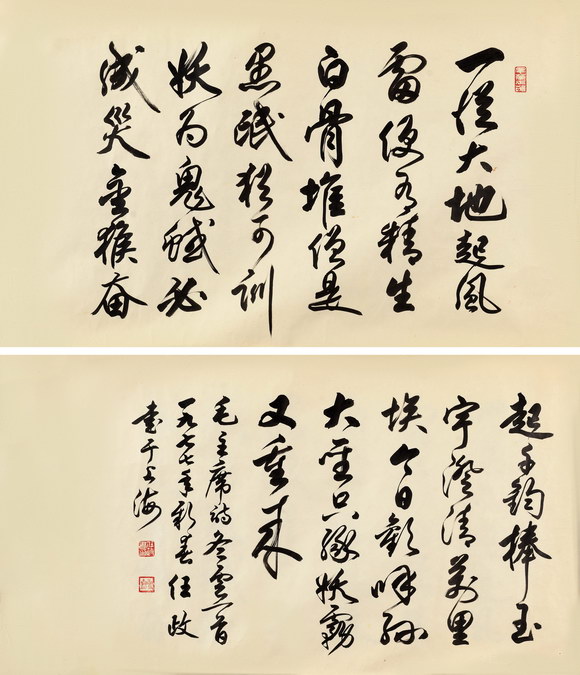 一從大地起風
雷便有精生
白骨堆僧是
愚氓猶可訓
妖为鬼蜮必
成災金猴奮
起千鈞棒玉
宇澄清萬里
埃今日歡呼孫
大聖只緣妖霧
又重来
毛主席詩冬雲一首
一九七七年新春任政
書于上海